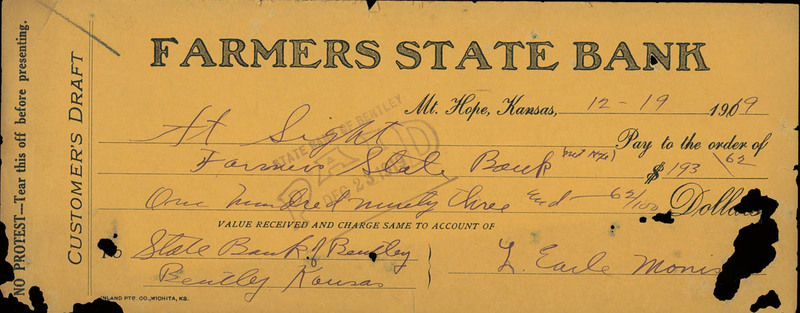 NO PROTEST—Tear this off before presenting.
CUSTOMER'S DRAFT
FARMERS STATE BANK
Mt. Hope, Kansas, 12-19 1909
At Sight Pay to the order of
Farmers State Bank $193 62
One hundred ninety three and - 62/100 Dollars
VALUE RECEIVED AND CHARGE SAME TO ACCOUNT OF
To State Bank of Bentley
Bentley Kansas
L. Earle
INLAND PTG. CO., WICHITA, KS.
STATE BANK OF BENTLEY
PAID
DEC 23